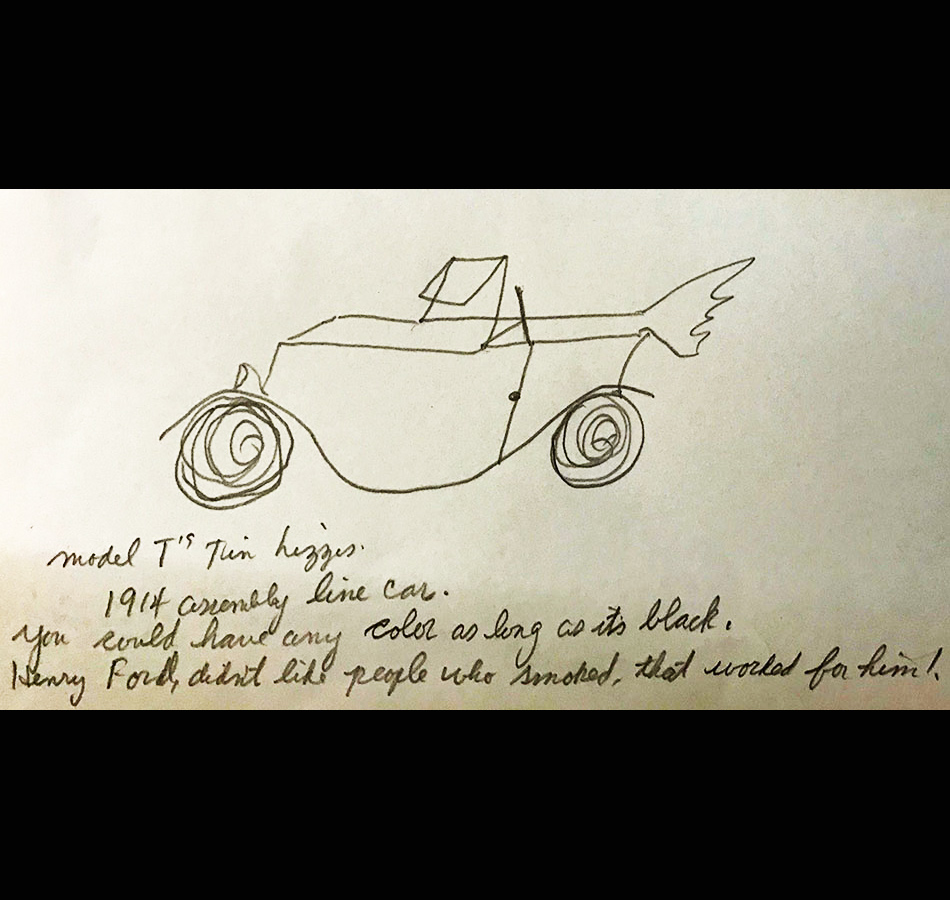 model T's Tin Lizzys.
1914 assembly line car.
You could have any color as long as its black.
Henry Ford, didn't like people who smoked, that worked for him!